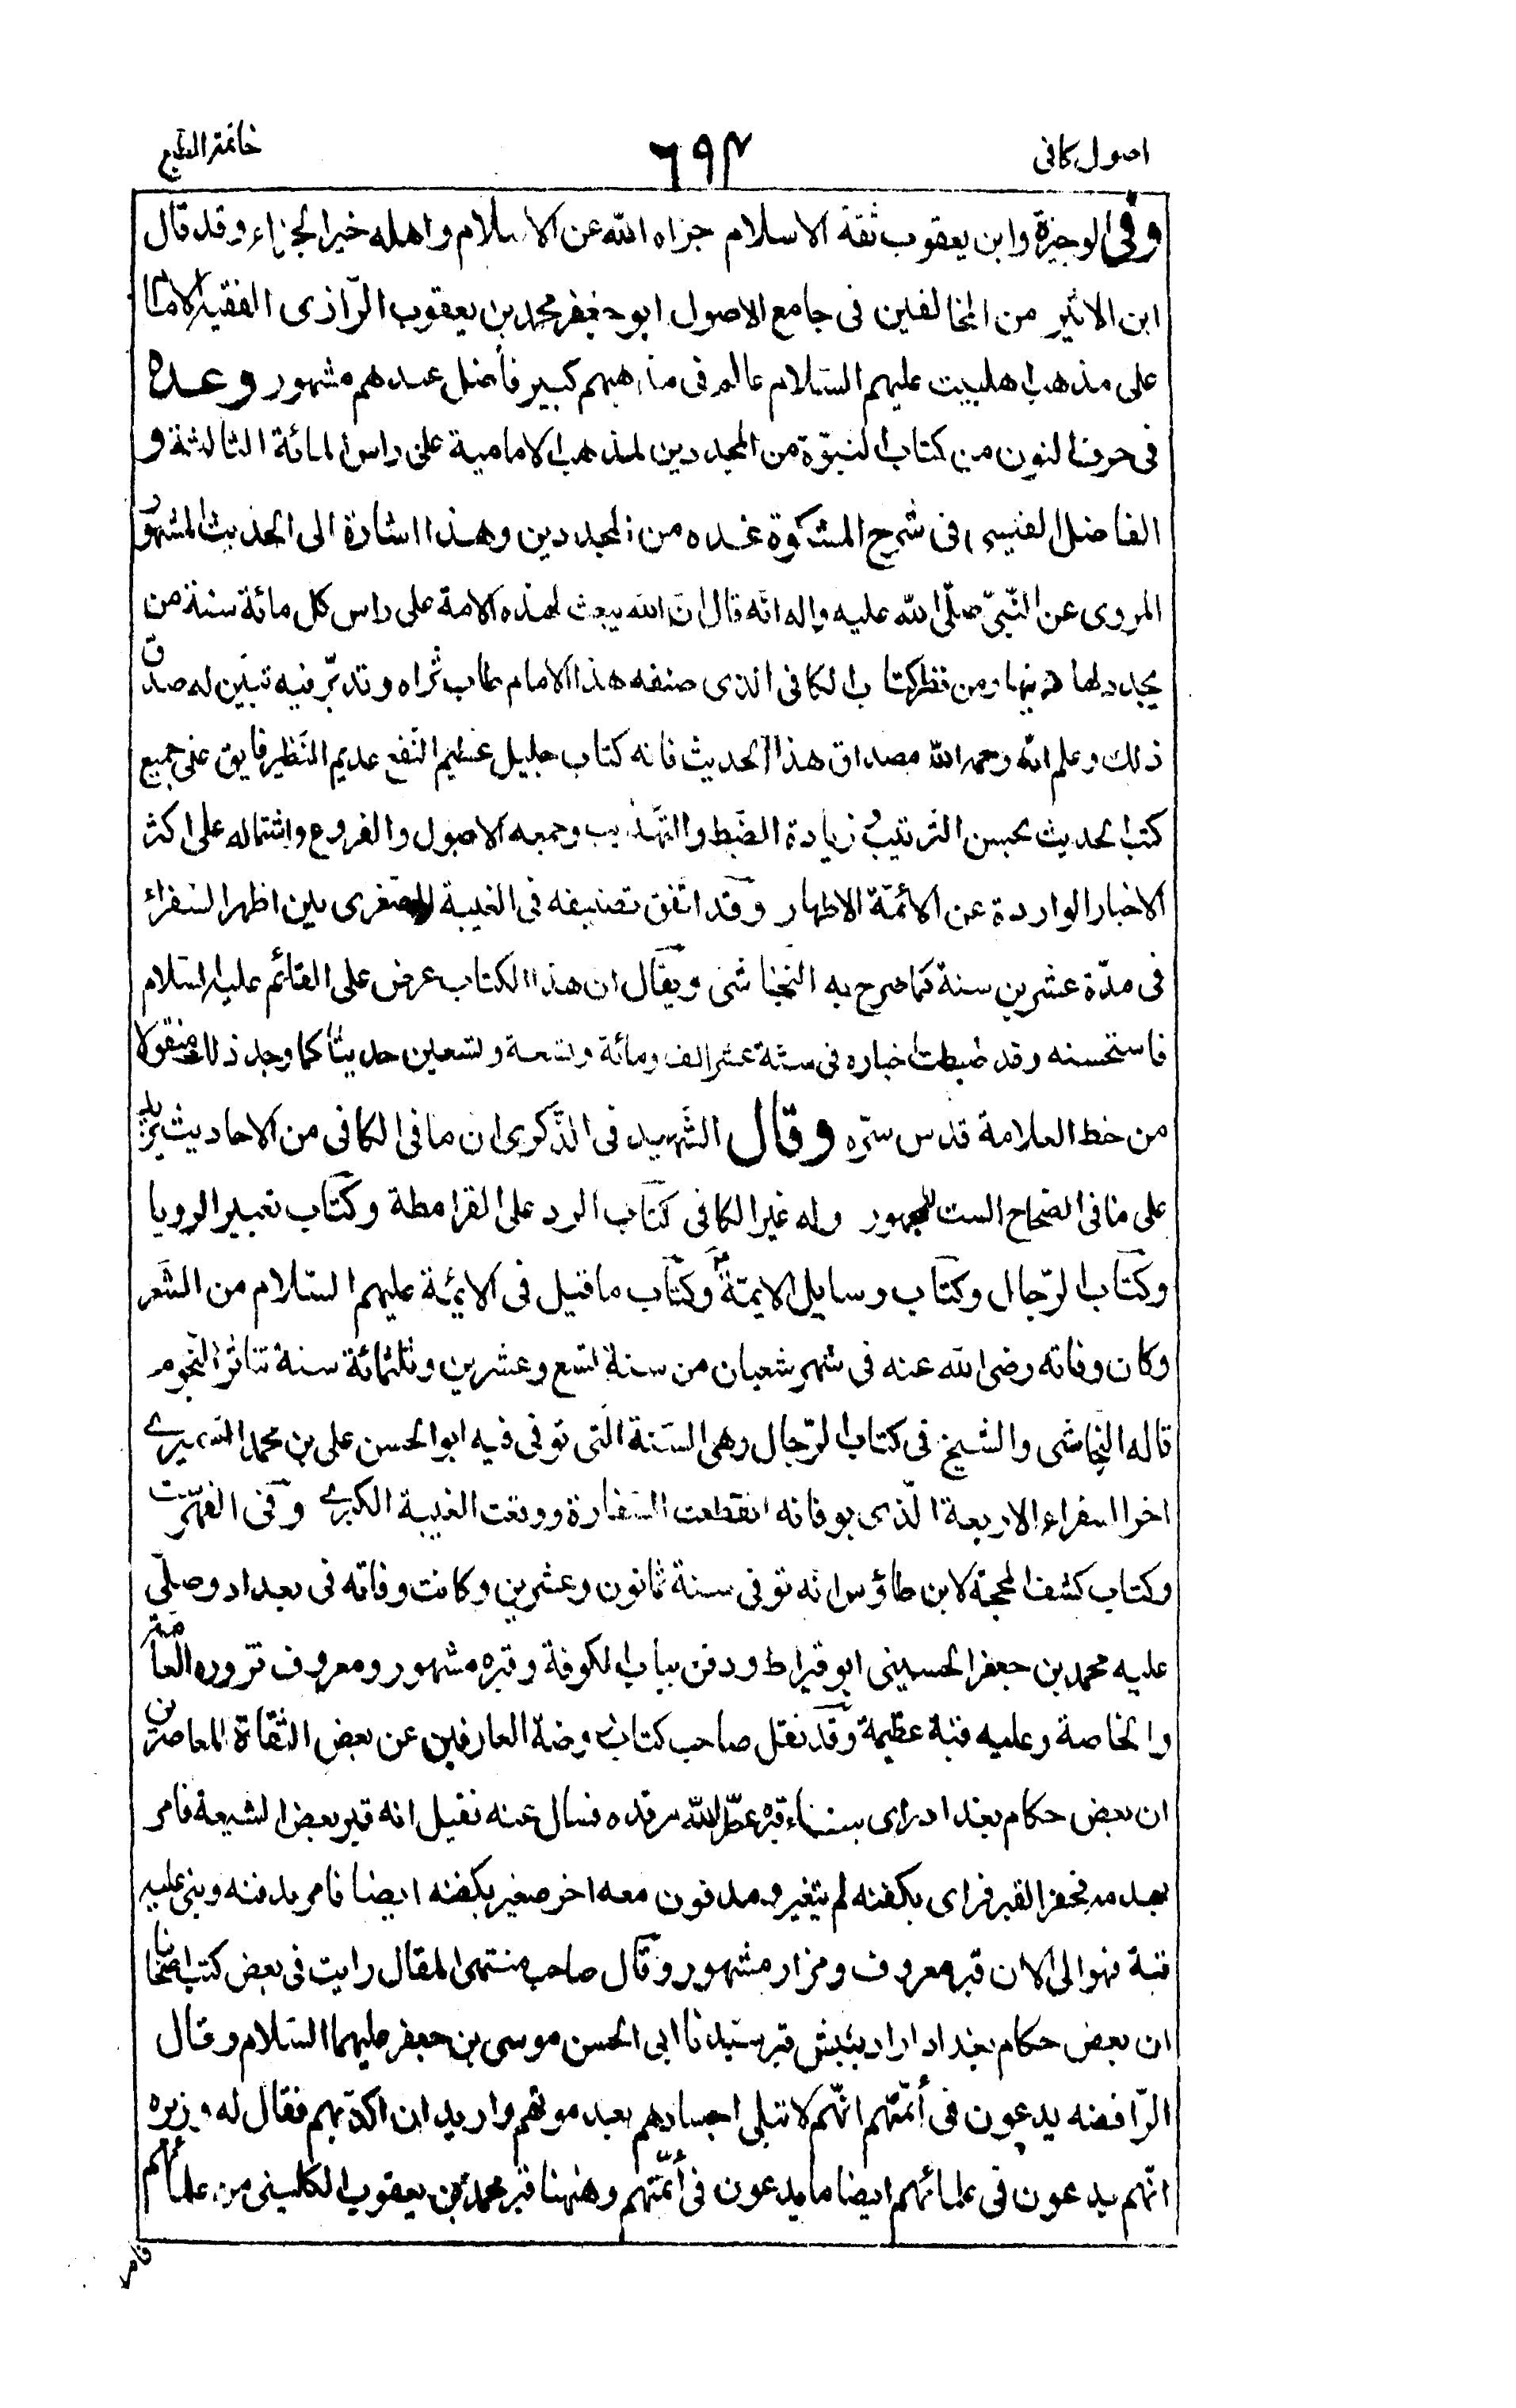 اصول كافى
٦٩٣
خاتمة الطبع
وفى الوجيزة وابن يعقوب ثقة الاسلام جزاه الله عن الاسلام واهله خير الجزاء وقد قال
ابن الاثير من المخالفين فى جامع الاصول ابو جعفر محمد بن يعقوب الرّازى الفقيه الامام
على مذهب اهلبيت عليهم السّلام عالم فى مذهبهم كبير فاضل عندهم مشهور وعده
فى حرف النون من كتاب النبوّة من المجددين لمذهب الامامية على راس المائة الثالثة و
الفاضل فى شرح المشكوة عده من المجددين وهذا اشارة الى الحديث المشهور
المروى عن النّبىّ صلّى الله عليه واله انّه قال انّ الله يبعث لهذه الامة على راس كل مائة سنة من
يجدد لها دينها ومن نظر كتاب الكافى الذى صنفه هذا الامام طاب ثراه وتدبّر فيه تبيّن له صدق
ذلك وعلم انّه رحمه الله مصداق هذا الحديث فانه كتاب جليل عظيم النّفع عديم النّظير فايق على جميع
كتب الحديث بحسن الترتيب وزيادة الضّبط والتهذيب وجمعه الاصول والفروع واشتماله على اكثر
الاخبار الواردة عن الائمّة الاطهار وقد اتفق تصنيفه فى الغيبة الصغرى بين اظهر السّفراء
فى مدّة عشرين سنة كما صرح به النّجاشى ويقال ان هذا الكتاب عرض على القائم عليه السّلام
فاستحسنه وقد ضبطت اخباره فى ستّة عشر الف ومائة وتسعة وتسعين حديثا كما وجد ذلك منقولا
من خط العلامة قدس سرّه وقال الشّهيد فى الذّكرى ان ما فى الكافى من الاحاديث يزيد
على ما فى الصّحاح الست للجمهور وله غير الكافى كتاب الرد على القرامطة وكتاب تعبير الرويا
وكتاب الرّجال وكتاب رسايل الايمّة وكتاب ما قيل فى الايمّة عليهم السّلام من الشّعر
وكان وفاته رضى الله عنه فى شهر شعبان من سنة تسع وعشرين وثلثمائة سنة تناثر النّجوم
قاله النّجاشى والشيخ فى كتاب الرّجال وهى السّنة الّتى توفى فيه ابو الحسن على بن محمد السّميرى
اخر السفراء الاربعة الّذى بوفاته انقطعت السّفارة ووقعت الغيبة الكبرى وفى الفهرست
وكتاب كشف المحجة لابن طاؤس انّه توفى سنة ثمانون وعشرين وكانت وفاته فى بغداد وصلّى
عليه محمد بن جعفر الحسينى ابو قيراط ودفن بباب الكوفة وقبره مشهور ومعروف تزوره العامّة
والخاصة وعليه قبة عظيمة وقد نقل صاحب كتاب روضة العارفين عن بعض الثّقاة المعاصرين
ان بعض حكام بغداد راى بناء قبره عطّر الله مرقده فسال عنه فقيل انه قبر بعض الشيعة فامر
بهدمه فحفر القبر فراى بكفنه لم يتغير ومدفون معه اخر صغير بكفنه ايضا فامر بدفنه وبنى عليه
قبة فهو الى الان قبره معروف ومزار مشهور وقال صاحب منتهى المقال رايت فى بعض كتب اصحابنا
ان بعض حكام بغداد اراد نبش قبر سيّدنا ابى الحسن موسى بن جعفر عليهما السّلام وقال
الرّافضه يدعون فى أئمّتهم انّهم لا تبلى اجسادهم بعد موتهم واريد ان اكذّبهم فقال له وزيره
انّهم يدعون فى علمائهم ايضا ما يدعون فى أئمّتهم وههنا قبر محمد بن يعقوب الكلينى من علمائهم
فامر